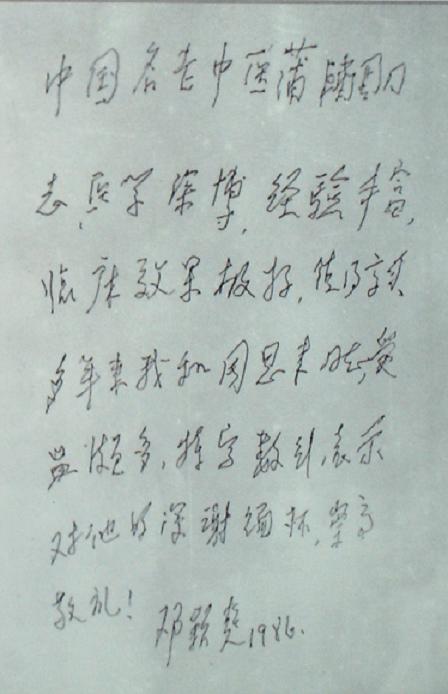 中国名老中医蒲辅周同
志,医学博,经验丰富,
临床效果极好,
多年来我和周恩来同志,受
益颇多,特写数行,表示
对他的深谢缅怀,崇高
敬礼! 邓颖超 1986.